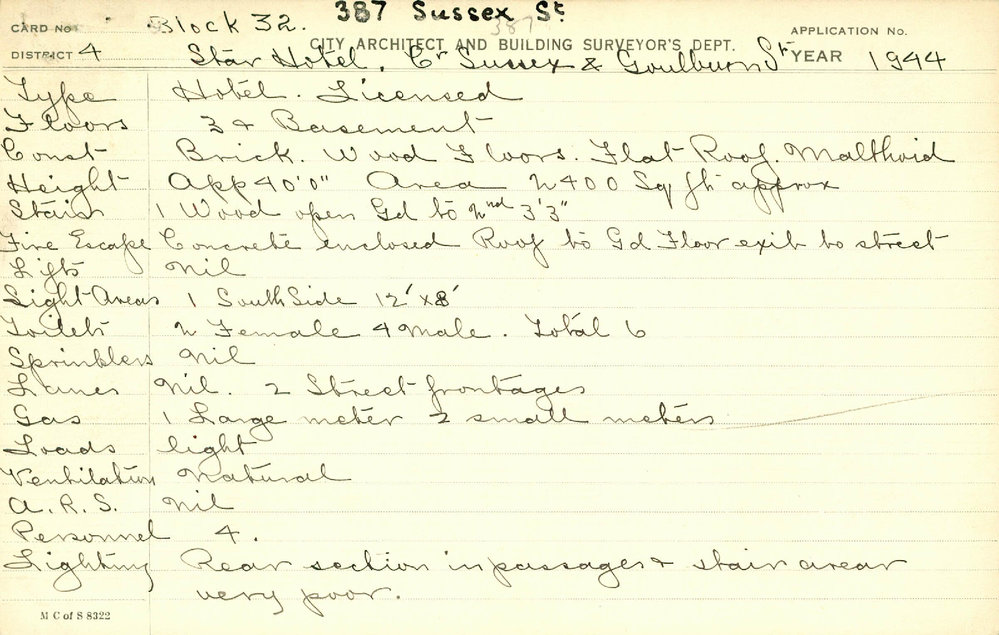 387 Sussex St
CARD No Block 32. 387 APPLICATION No.
CITY ARCHITECT AND BUILDING SURVEYOR'S DEPT.
DISTRICT 4 Star Hotel, Cr Sussex & Goulburn Sts YEAR 1944
Type Hotel. Licensed
Floors 3 & Basement
Const Brick. Wood Floors. Flat Roof. Malthoid
Height App 40'0" Area 2400 Sq ft approx
Stairs 1 Wood open Gd to 2nd 3'3"
Fire Escape Concrete enclosed Roof to Gd Floor exit to street
Lifts Nil
Light Areas 1 South Side 12' x 8'
Toilets 2 Female 4 Male. Total 6
Sprinklers Nil
Lanes Nil. 2 Street frontages
Gas 1 Large meter 2 small meters
Loads light
Ventilation Natural
A.R.S. Nil
Personnel 4.
Lighting Rear section in passages & stair areas
very poor.
M C of S 8322